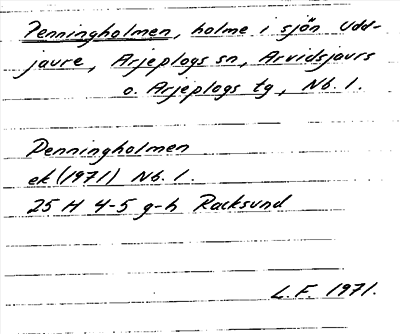 Penningholmen, holme i sjön Udd-
jaure, Arjeplogs sn, Arvidsjaurs
o. Arjeplogs tg, Nb. l.
Penningholmen
ek (1971) Nb. l.
25 H 4-5 g-h Racksund
L.F. 1971.